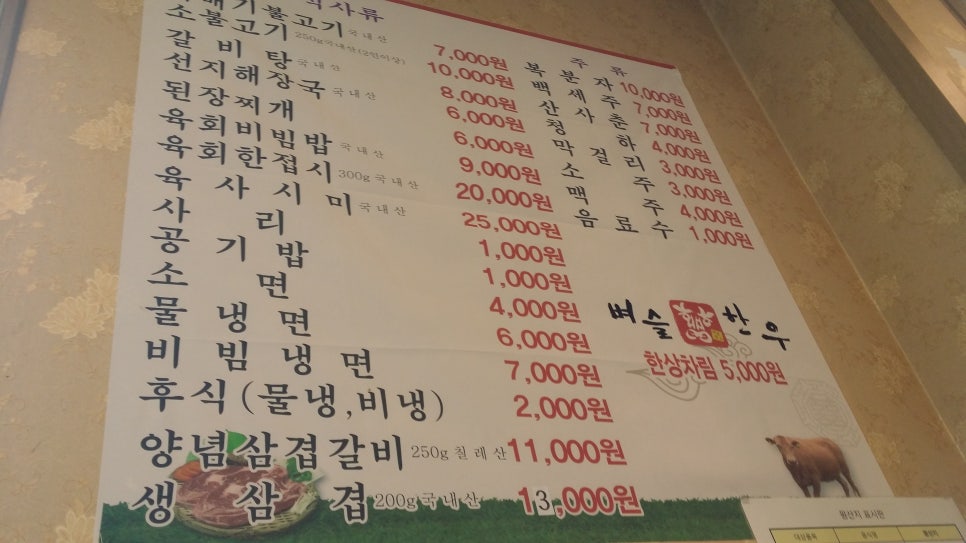 식사류
배기불고기 국내산 7,000원
소불고기 250g국내산(2인이상) 10,000원
갈비탕 국내산 8,000원
선지해장국 국내산 6,000원
된장찌개 6,000원
육회비빔밥 국내산 9,000원
육회한접시 300g 국내산 20,000원
육사시미 국내산 25,000원
사리 1,000원
공기밥 1,000원
소면 4,000원
물냉면 6,000원
비빔냉면 7,000원
후식(물냉,비냉) 2,000원
양념삼겹갈비 250g 칠레산 11,000원
생삼겹 200g 국내산 13,000원
주류
복분자 10,000원
백세주 7,000원
산사춘 7,000원
청하 4,000원
막걸리 3,000원
소주 3,000원
맥주 4,000원
음료수 1,000원
벼슬 한우
한상차림 5,000원
원산지 표시판